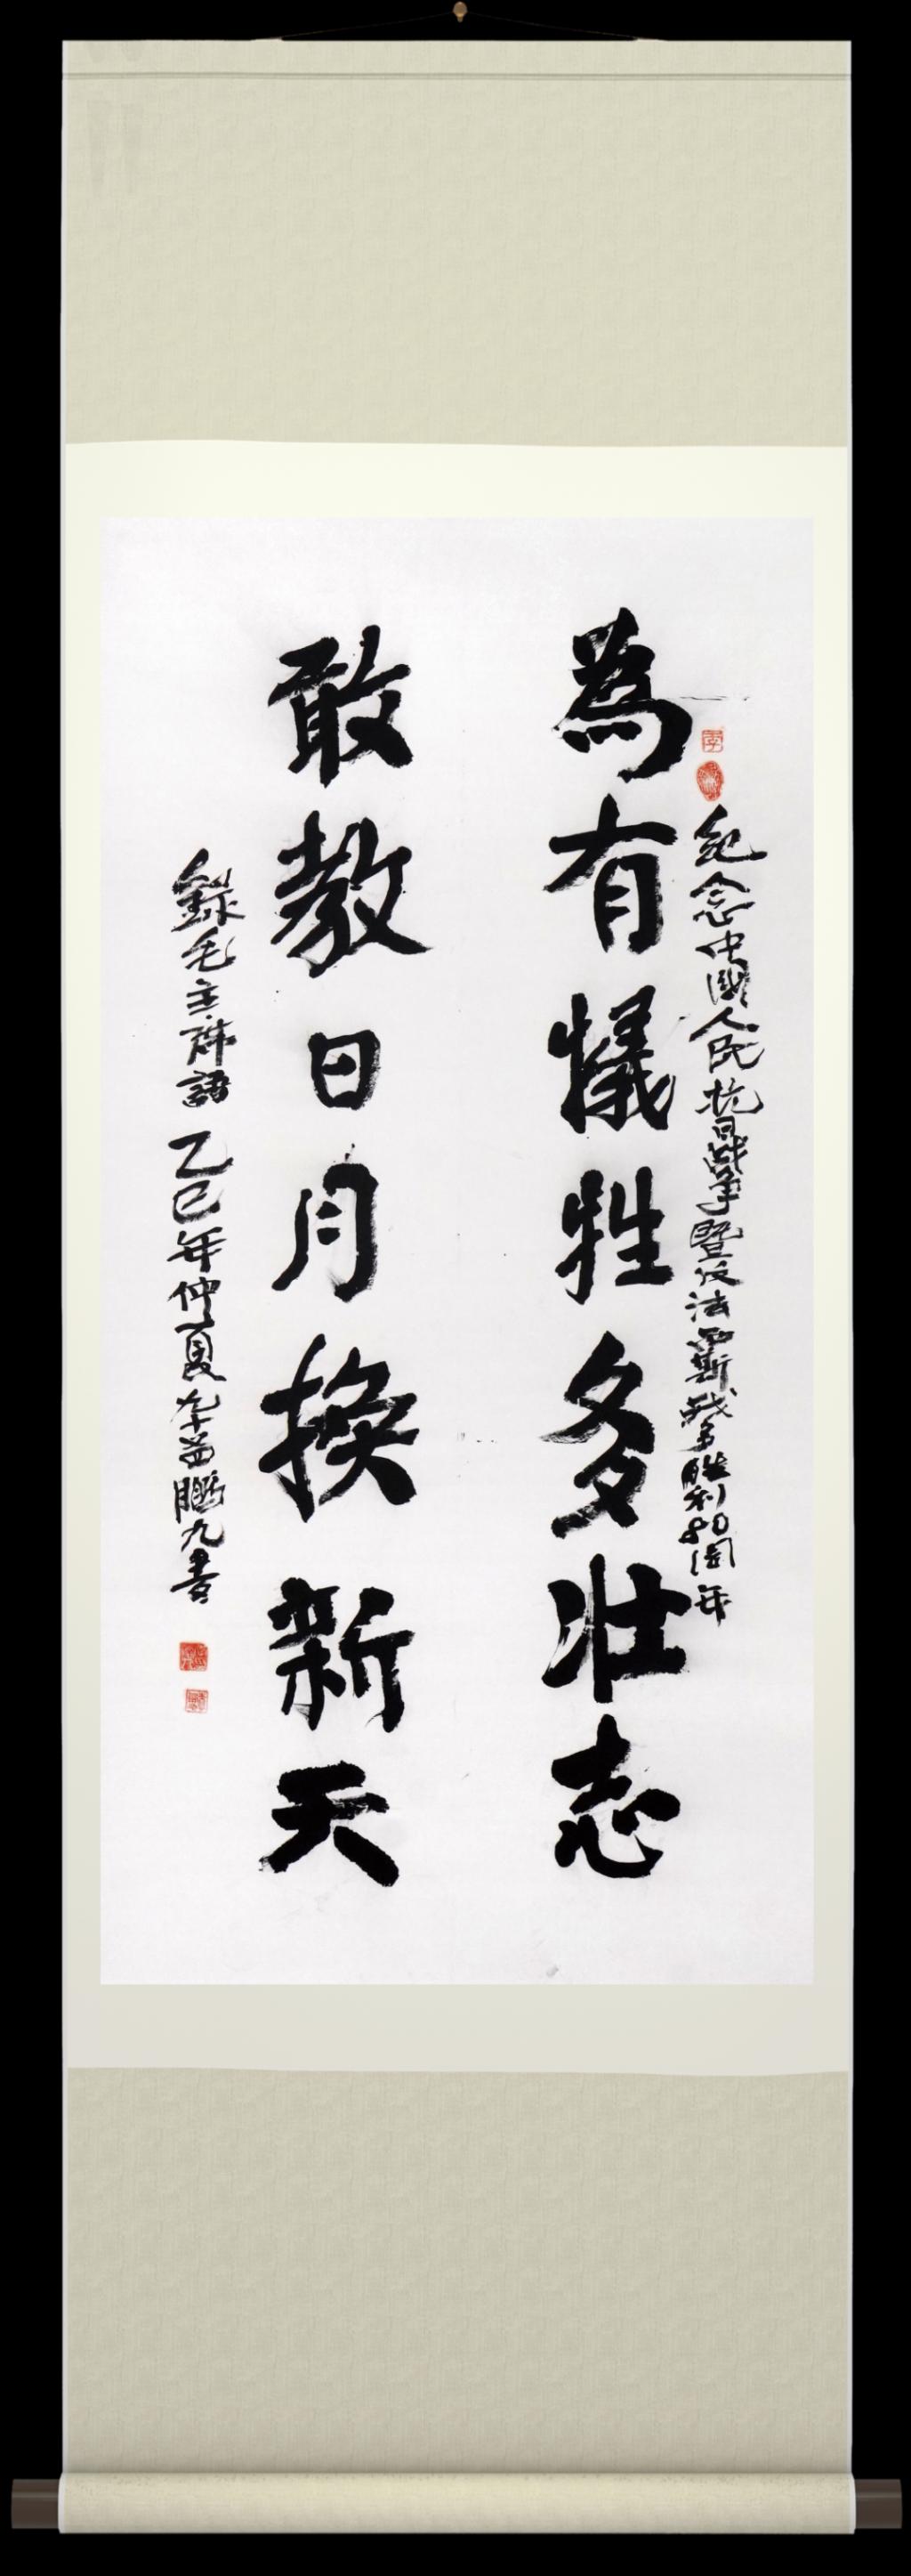 紀念中國人民抗日戰爭暨反法西斯戰爭勝利80周年
為有犧牲多壯志
敢教日月換新天
錄毛主席語 乙巳年仲夏九十叟鵬九書